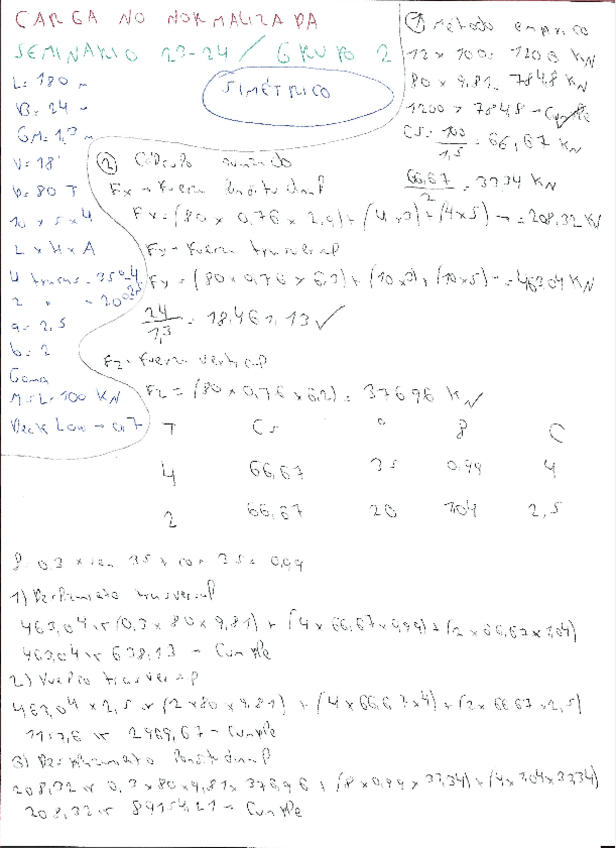 CARGA NO NORMALIZADA
SEMINARIO 23-24 / GRUPO 2
SIMÉTRICO
L= 180 m
B= 24 m
GM= 1,3 m
V= 18'
P= 80 T
10 x 5 x 4
L x H x A
4 trincas - 35º - 4
2 " - 20º 2,5
a= 2,5
b= 2
Goma
MSL= 100 KN
Deck Low - 0,7
① Método empírico
12 x 100= 1200 KN
80 x 9,81= 784,8 KN
1200 > 784,8 - Cumple
CS= 100/1,5 = 66,67 KN
66,67/2 = 33,34 KN
② Cálculo avanzado
Fx - Fuerza longitudinal
Fx=(80 x 0,76 x 2,9)+(4x3)+(4x5) -= 208,32 KN
Fy - Fuerza transversal
Fy=(80x0,76x6,3)+(10x3)+(10x5) -= 463,04 KN
24/1,3 = 18,46 > 13 ✓
Fz - Fuerza vertical
Fz=(80x0,76x6,2)= 376,96 KN
T CS º f C
4 66,67 35 0,99 4
2 66,67 20 1,04 2,5
f 0,3 x sen 35 + cos 35= 0,99
1) Deslizamiento transversal
463,04 < (0,3 x 80 x 9,81) + (4 x 66,67 x 0,99)+(2 x 66,67 x 1,04)
463,04 < 638,13 - Cumple
2) Vuelco transversal
463,04 x 2,5 < (2x80 x 9,81) + (4 x 66,67 x 4)+(2x 66,67 x 2,5)
1157,6 < 2969,67 - Cumple
3) Deslizamiento longitudinal
208,32 < 0,3 x 80 x 9,81 x 376,96 + (8 x 0,99 x 33,34)+(4x1,04x33,34)
208,32 < 89154,21 - Cumple